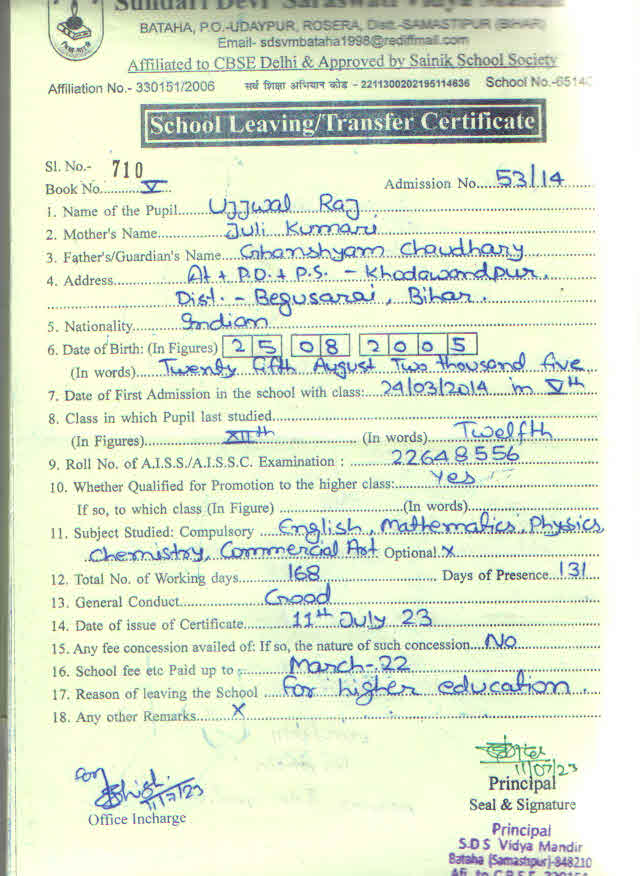 Sundari Devi Saraswati Vidya
BATAHA, P.O.-UDAYPUR, ROSERA, Distt.-SAMASTIPUR (BIHAR)
Email- sdsvmbataha1998@rediffmail.com
Affiliated to CBSE Delhi & Approved by Sainik School Society
Affiliation No.- 330151/2006 सर्व शिक्षा अभियान कोड - 2211300202195114636 School No.-6514
School Leaving/Transfer Certificate
Sl. No.- 710
Book No. V Admission No. 53/14
1. Name of the Pupil Ujjwal Raj
2. Mother's Name Juli Kumari
3. Father's/Guardian's Name Ghanshyam Chaudhary
4. Address At + P.O. + P.S. - Khodawandpur.
Dist. - Begusarai, Bihar.
5. Nationality Indian
6. Date of Birth: (In Figures) 2 5 0 8 2 0 0 5
(In words) Twenty fifth August Two thousand five
7. Date of First Admission in the school with class: 24/03/2014 in Vth
8. Class in which Pupil last studied
(In Figures) XIIth (In words) Twelfth
9. Roll No. of A.I.S.S./A.I.S.S.C. Examination : 22648556
10. Whether Qualified for Promotion to the higher class: Yes
If so, to which class (In Figure) (In words)
11. Subject Studied: Compulsory English, Mathematics, Physics
Chemistry, Commercial Art Optional X
12. Total No. of Working days 168 Days of Presence 131
13. General Conduct Good
14. Date of issue of Certificate 11th July 23
15. Any fee concession availed of: If so, the nature of such concession No
16. School fee etc Paid up to March-22
17. Reason of leaving the School for higher education.
18. Any other Remarks X
11/07/23
Principal
Seal & Signature
for
11/7/23
Office Incharge
Principal
S.D.S Vidya Mandir
Bataha (Samastipur)-848210
Afi. to C.B.S.E. 330151